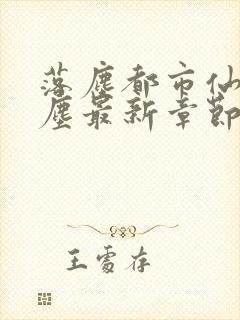 落塵都市仙
塵最新章節
王雪存